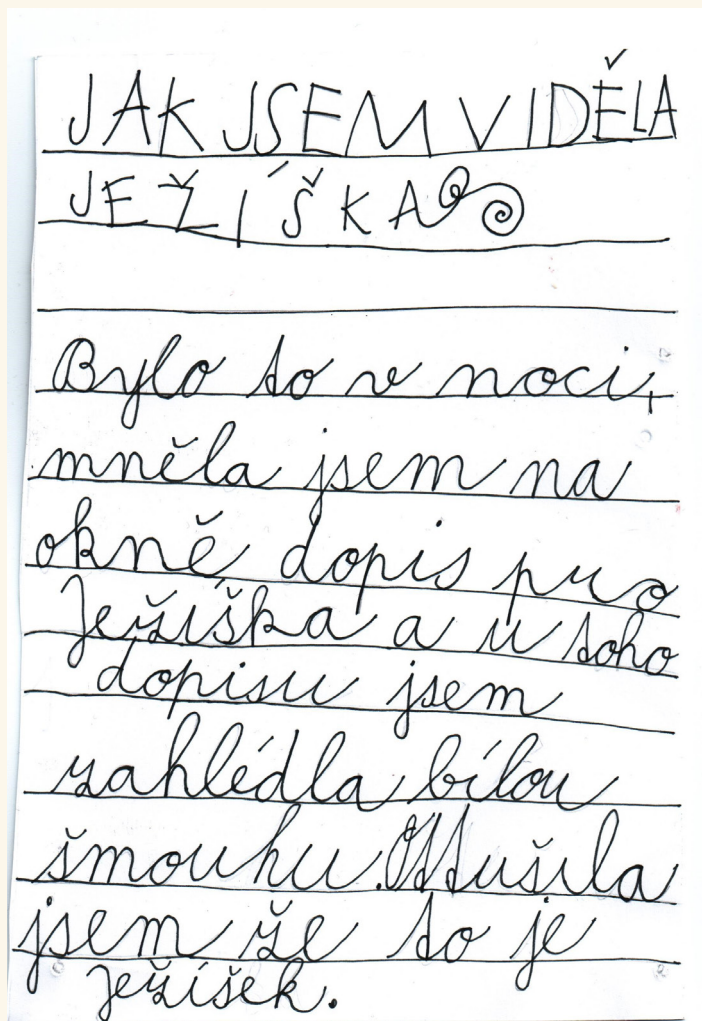 JAK JSEM VIDĚLA
JEŽÍŠKA
Bylo to v noci,
mněla jsem na
okně dopis pro
Ježíška a u toho
dopisu jsem
zahlédla bílou
šmouhu. Tušila
jsem že to je
ježíšek.